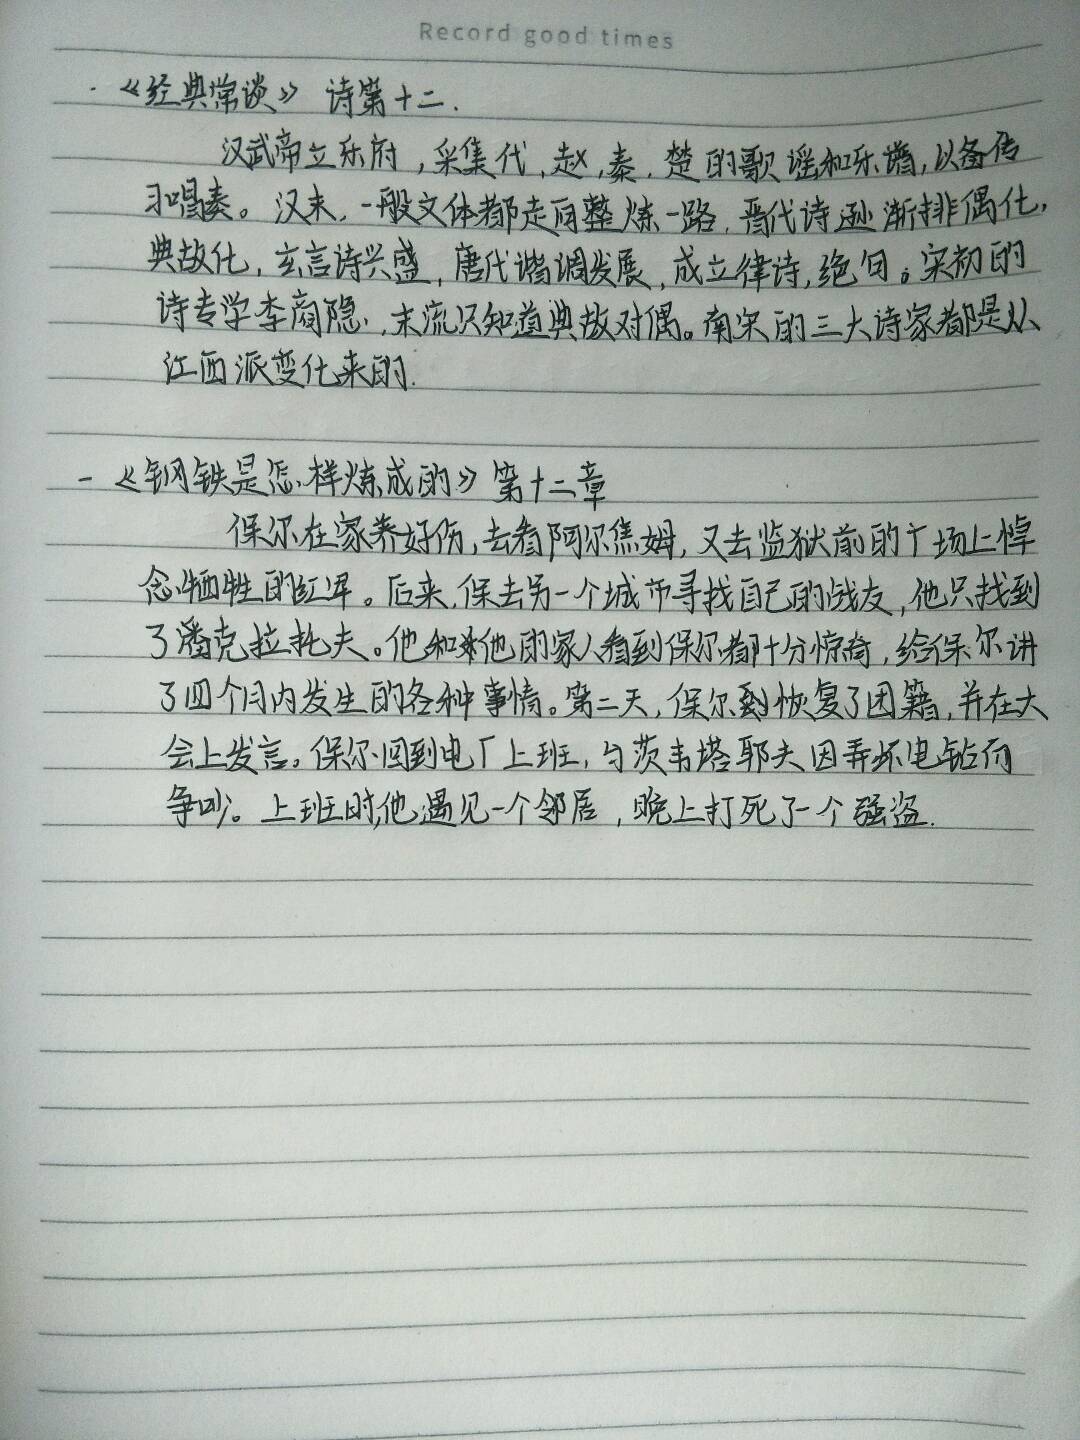 Record good times
·《经典常谈》 诗第十二.
汉武帝立乐府,采集代,赵,秦,楚的歌谣和乐谱,以备传
习唱奏。汉末,一般文体都走向整炼一路,晋代诗逊渐排偶化,
典故化,玄言诗兴盛,唐代谐调发展,成立律诗,绝句。宋初的
诗专学李商隐,末流只知道典故对偶。南宋的三大诗家都是从
江西派变化来的.
-《钢铁是怎样炼成的》第十二章
保尔在家养好伤,去看阿尔焦姆,又去监狱前的广场上悼
念牺牲的红军。后来,保去另一个城市寻找自己的战友,他只找到
了潘克拉托夫。他和他的家人看到保尔都十分惊奇,给保尔讲
了四个月内发生的各种事情。第二天,保尔到恢复了团籍,并在大
会上发言。保尔回到电厂上班,与茨韦塔耶夫因弄坏电钻而
争吵。上班时,他遇见一个邻居,晚上打死了一个强盗.